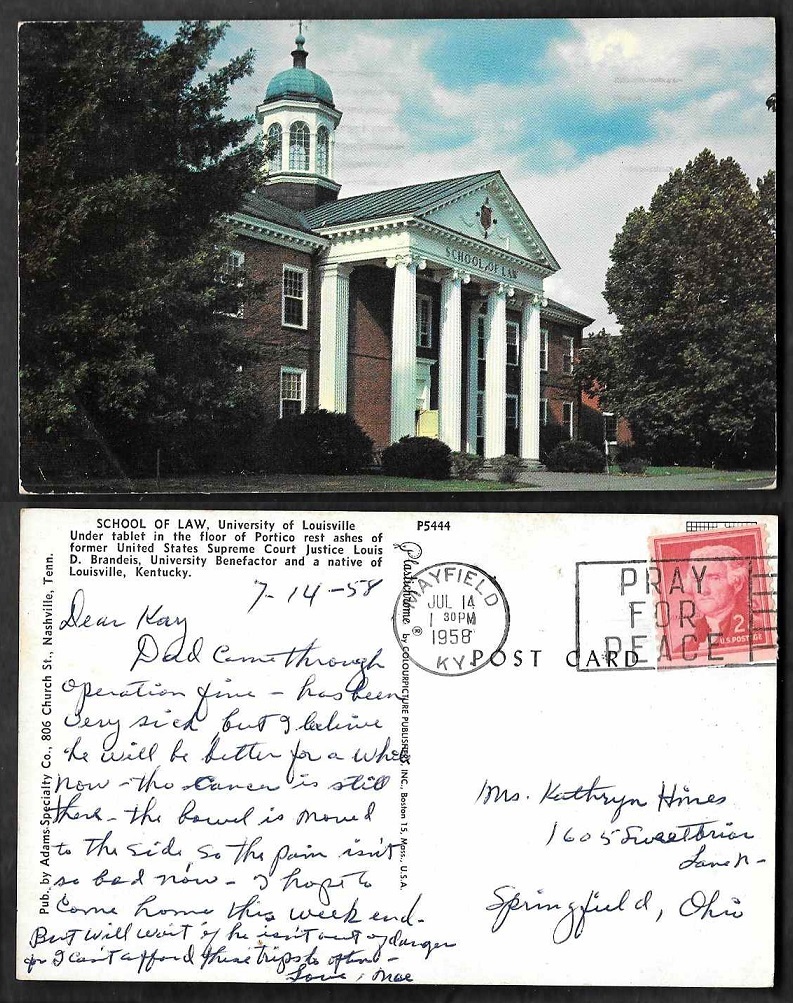 SCHOOL OF LAW
SCHOOL OF LAW, University of Louisville
Under tablet in the floor of Portico rest ashes of
former United States Supreme Court Justice Louis
D. Brandeis, University Benefactor and a native of
Louisville, Kentucky.
P5444
7-14-58
Dear Kay
Dad came through
operation fine - has been
very sick but I believe
he will be better for a while
now - tho cancer is still
there - the bowel is moved
to the side so the pain isn't
so bad now - I hope to
come home this week end.
But will wait if he isn't out of danger
for I can't afford these trips to often -
Love, Mae
Pub. by Adams Specialty Co., 806 Church St., Nashville, Tenn.
Plastichrome ® by COLOURPICTURE PUBLISHERS, INC., Boston 15, Mass., U.S.A.
MAYFIELD
JUL 14
1 30PM
1958
KY.
PRAY
FOR
PEACE
2¢
U.S. POSTAGE
POST CARD
Mrs. Kathryn Hines
1605 Sweetbriar
Lane N-
Springfield, Ohio